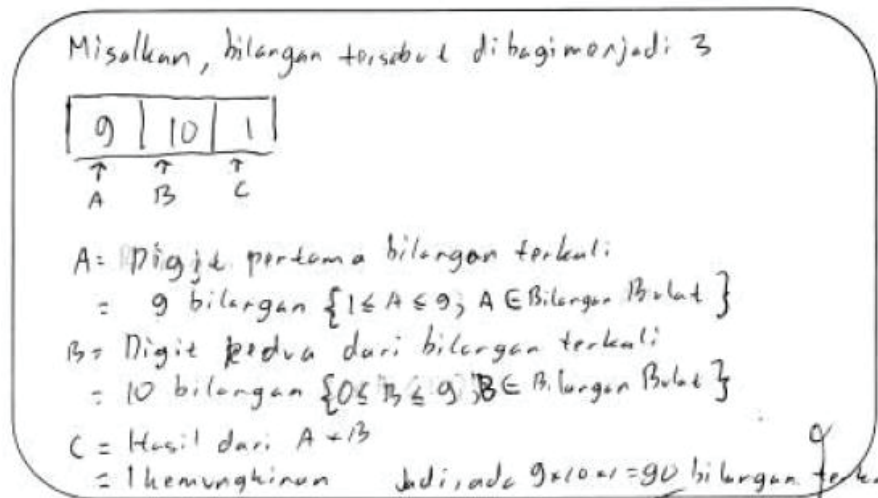 Misalkan, bilangan tersebut dibagi menjadi 3
9 | 10 | 1
↑ ↑ ↑
A B C
A = Digit pertama bilangan terkali
= 9 bilangan {1 ≤ A ≤ 9; A ∈ Bilangan Bulat}
B = Digit kedua dari bilangan terkali
= 10 bilangan {0 ≤ B ≤ 9; B ∈ Bilangan Bulat}
C = Hasil dari A × B
= 1 kemungkinan Jadi, ada 9×10×1 = 90 bilangan